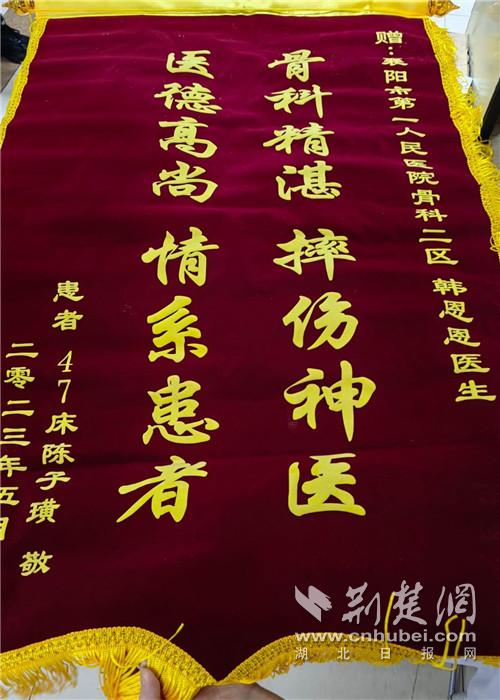 赠：襄阳市第一人民医院骨科二区 韩恩恩医生
骨科精湛 摔伤神医
医德高尚 情系患者
患者 47床陈子璜 敬
二零二三年五月
荆楚网
www.cnhubei.com
湖北日报网